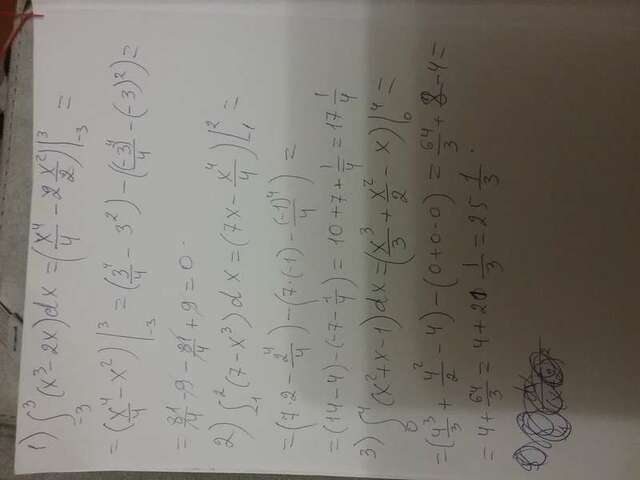 1) ∫₋₃³ (x³ - 2x)dx = (x⁴/4 - 2x²/2)|₋₃³ =
= (x⁴/4 - x²)|₋₃³ = (3⁴/4 - 3²) - ((-3)⁴/4 - (-3)²) =
= 81/4 - 9 - 81/4 + 9 = 0.
2) ∫₋₁² (7 - x³)dx = (7x - x⁴/4)|₁² =
= (7·2 - 2⁴/4) - (7·(-1) - (-1)⁴/4) =
= (14 - 4) - (-7 - 1/4) = 10 + 7 + 1/4 = 17 1/4
3) ∫₀⁴ (x² + x - 1)dx = (x³/3 + x²/2 - x)|₀⁴ =
= (4³/3 + 4²/2 - 4) - (0 + 0 - 0) = 64/3 + 8 - 4 =
= 4 + 64/3 = 4 + 21 1/3 = 25 1/3.